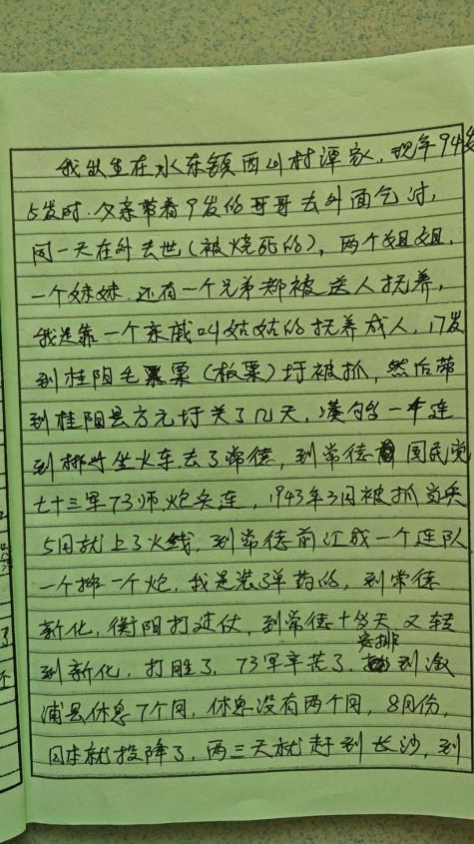 我出生在水东镇西山村谭家,现年94岁
5岁时.父亲带着9岁的哥哥去外面乞讨,
同一天在外去世(被烧死的),两个姐姐,
一个妹妹,还有一个兄弟都被送人抚养,
我是靠一个亲戚叫姑姑的抚养成人,17岁
到桂阳毛栗(板栗)圩被抓,然后带
到桂阳县方元圩关了几天,凑够一个连
到郴州坐火车去了常德,到常德 国民党
七十三军73师炮兵连,1943年3月被抓当兵
5月就上了火线,到常德前江我一个连队
一个排一个炮,我是装弹药的,到常德
新化,衡阳打过仗,到常德十多天,又转
到新化,打胜了,73军辛苦了,安排到溆
浦县休息7个月,休息没有两个月,8月份,
日本就投降了,两三天就赶到长沙,到